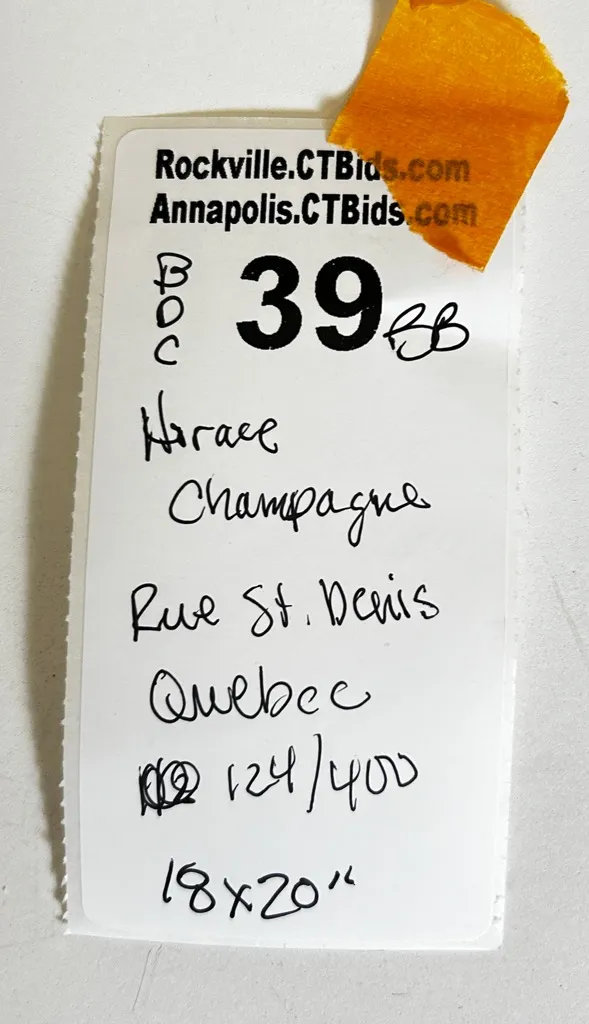 Rockville.CTBids.com
Annapolis.CTBids.com
BDC 39 BB
Horace
Champagne
Rue St. Denis
Quebec
124/400
18x20"